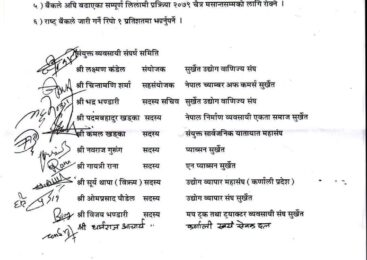 ५ ) बैंकले अघि बढाएका सम्पूर्ण लिलामी प्रक्रिया २०७९ चैत्र मसान्तसम्मको लागि रोक्ने ।
६ ) राष्ट्र बैंकले जारी गर्ने रिपो १ प्रतिशतमा झार्नुपर्ने ।
संयुक्त ब्यवसायी संघर्ष समिति
श्री लक्ष्मण कंडेल संयोजक सुर्खेत उद्योग वाणिज्य संघ
श्री चिन्तामणि शर्मा सहसंयोजक नेपाल च्याम्बर अफ कमर्स सुर्खेत
श्री भद्र भण्डारी सदस्य सचिव सुर्खेत उद्योग वाणिज्य संघ
श्री पदमबहादुर खड्का सदस्य नेपाल निर्माण ब्यवसायी एकता समाज सुर्खेत
श्री कमल खड्का सदस्य संयुक्त सार्वजनिक यातायात महासंघ
श्री नवराज गुरुंग सदस्य प्याब्सन सुर्खेत
श्री गायत्री राना सदस्य एन प्याब्सन सुर्खेत
श्री सूर्य थापा ( विक्रम ) सदस्य उद्योग ब्यापार महासंघ ( कर्णाली प्रदेश )
श्री ओमप्रसाद पौडेल सदस्य उद्योग ब्यापार संघ सुर्खेत
श्री विजय भण्डारी सदस्य मध्य ट्रक तथा ट्र्याक्टर ब्यवसायी संघ सुर्खेत
श्री धर्मराज आचार्य कर्णाली